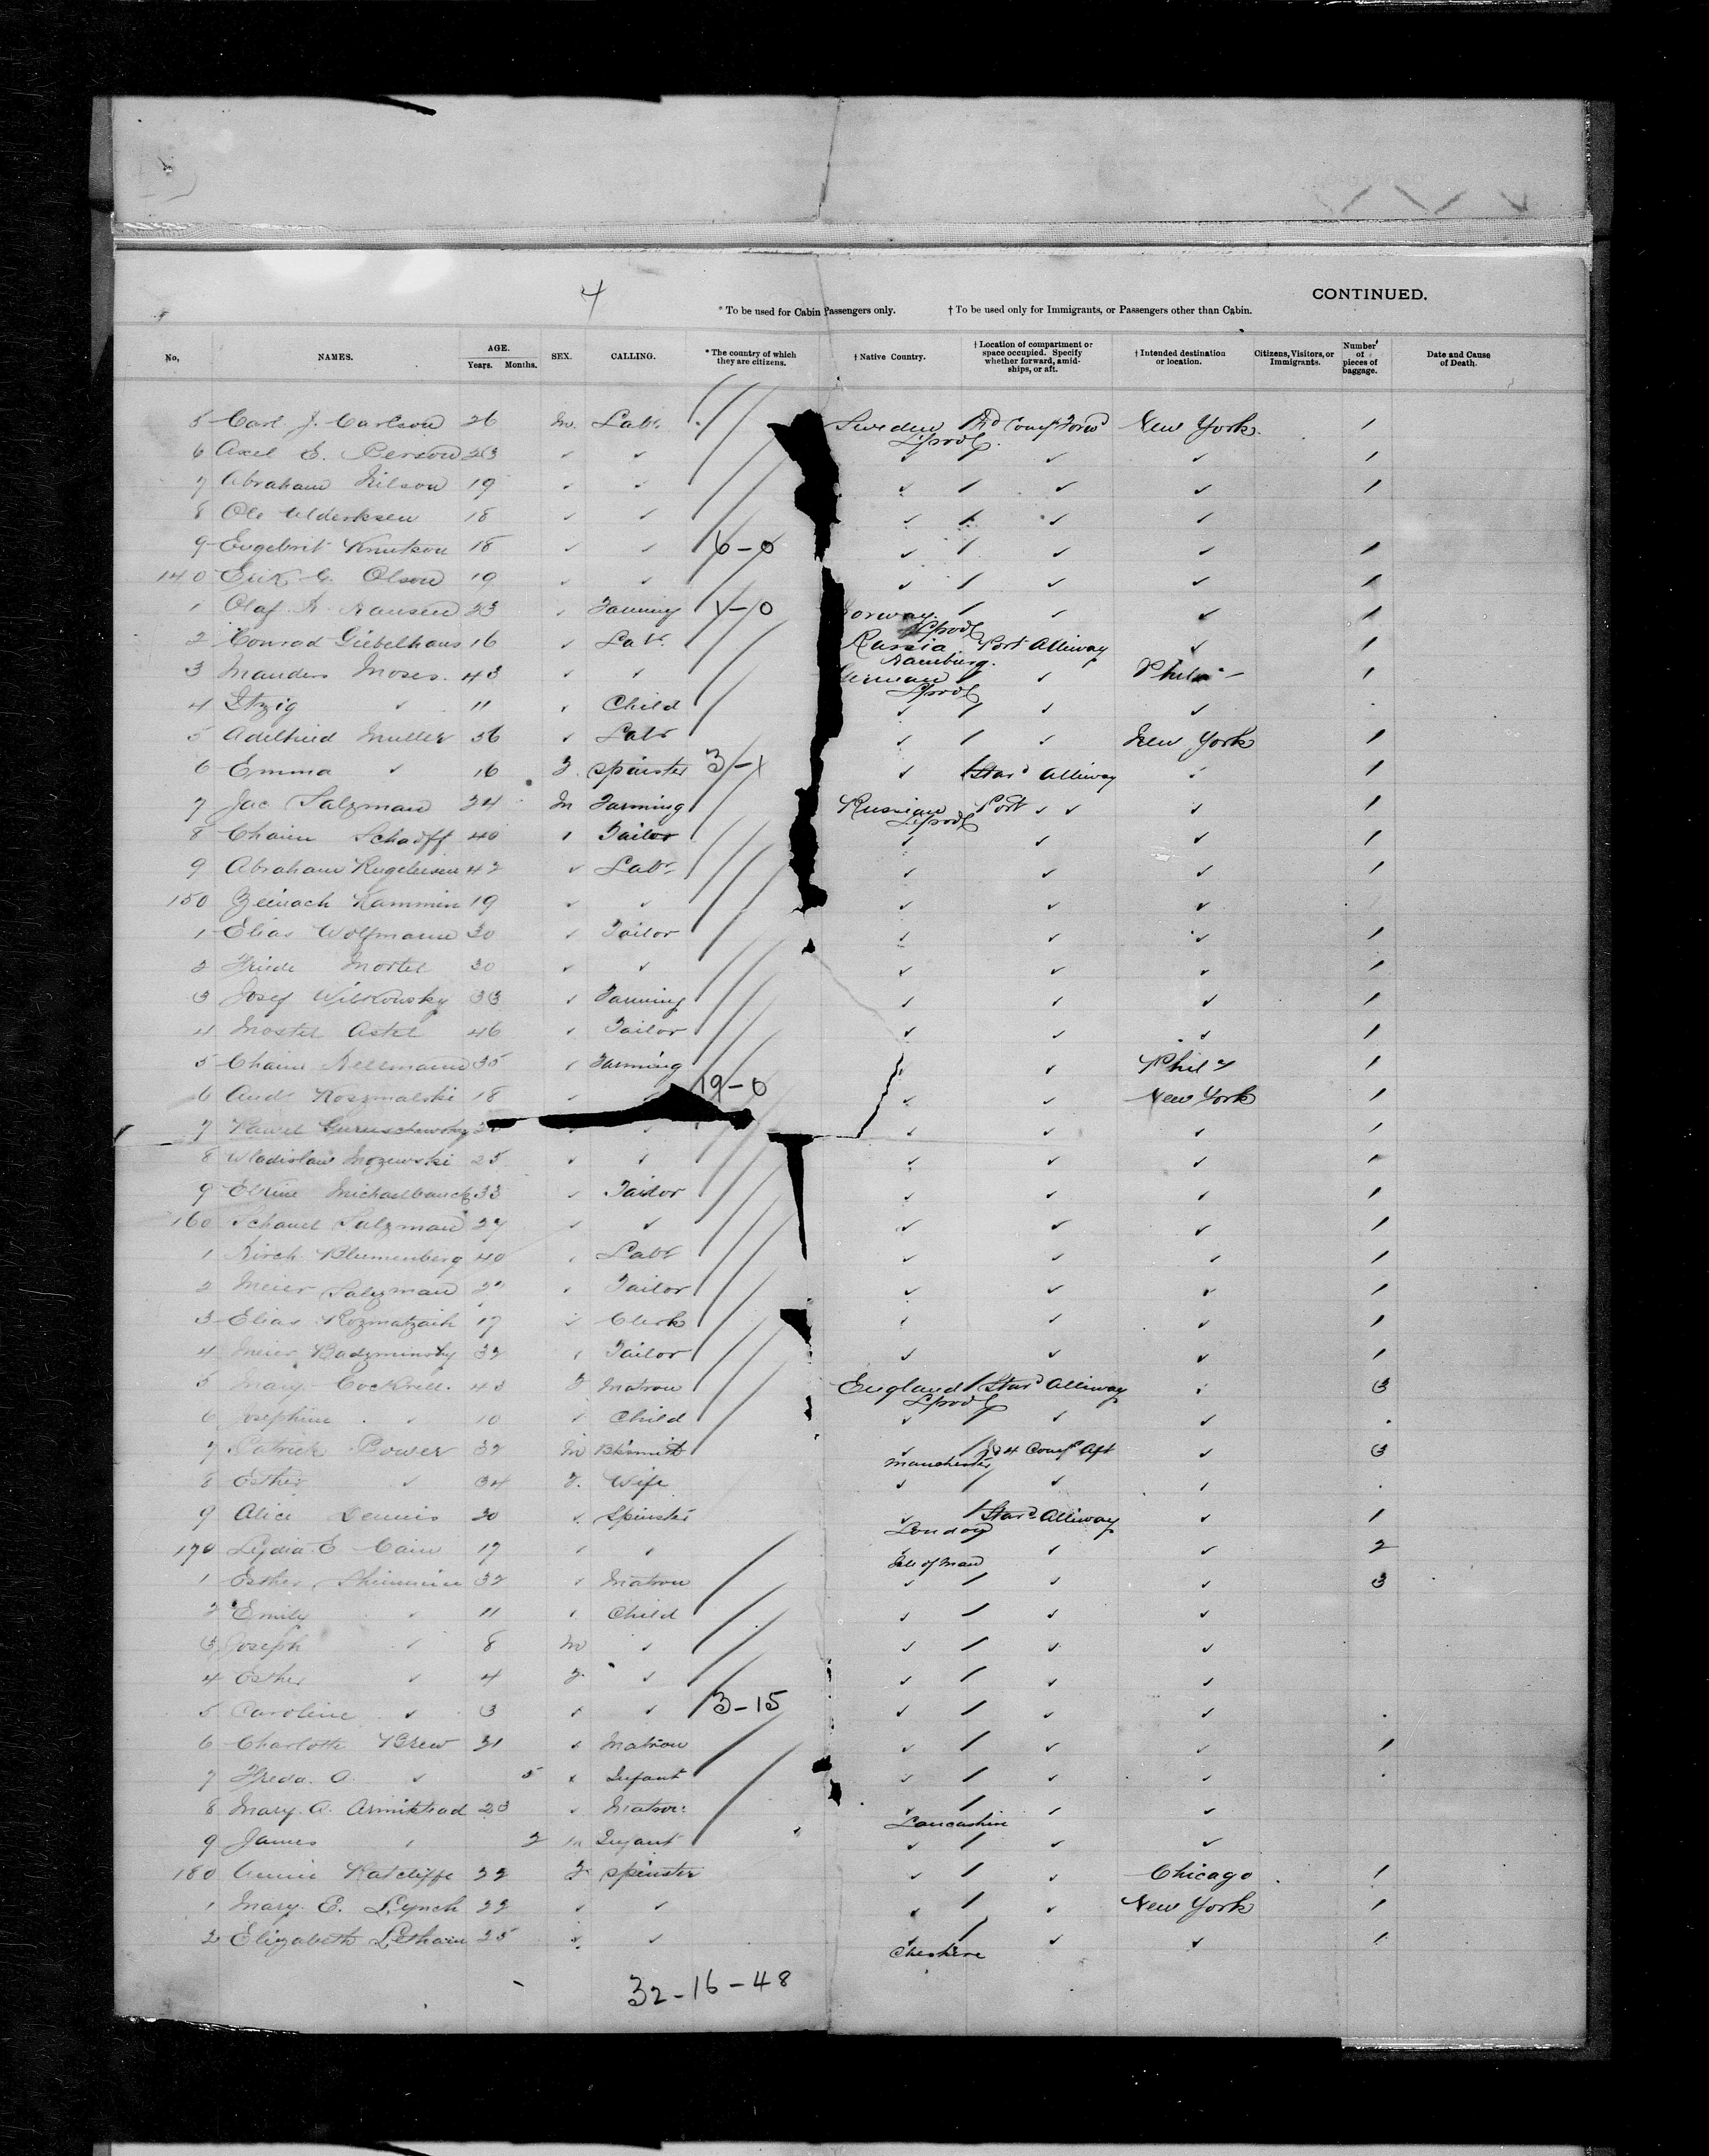 4
CONTINUED.
* To be used for Cabin Passengers only. † To be used only for Immigrants, or Passengers other than Cabin.
No. NAMES. AGE. Years. Months. SEX. CALLING. * The country of which they are citizens. † Native Country. † Location of compartment or space occupied. Specify whether forward, amidships, or aft. † Intended destination or location. Citizens, Visitors, or Immigrants. Number of pieces of baggage. Date and Cause of Death.
5 Carl J. Carlson 26 M. Labr. Sweden Lpool Forwd New York. 1
6 Axel E. Person 23 ✓ ✓ ✓ ✓ ✓ 1
7 Abraham Nilson 19 ✓ ✓ ✓ ✓ ✓ 1
8 Ole 18 ✓ ✓ ✓ ✓ ✓
9 Engebrit Knutson 18 ✓ ✓ 6-0 ✓ ✓ ✓ 1
140 Erik G. Olson 19 ✓ ✓ ✓ ✓ ✓ 1
1 Olaf A. Hansen 23 ✓ Farming 1-0 orway Lpool ✓ ✓ 1
2 Conrad Giebelhaus 16 ✓ Labr. Russia Hamburg. Port Alliway ✓ 1
3 Manders Moses. 43 ✓ ✓ erman Lpool ✓ Phila 1
4 Itzig ✓ 11 ✓ Child ✓ ✓ ✓
5 Muller 36 ✓ Labr ✓ ✓ New York 1
6 Emma ✓ 16 F. Spinster 3-1 ✓ Stard Alliway ✓ 1
7 Jac Salzman 24 M Farming Russian Lpool Port ✓ ✓ ✓ 1
8 Chaim Schaff 40 ✓ Tailor ✓ ✓ ✓ 1
9 Abraham 42 ✓ Labr. ✓ ✓ ✓ 1
150 Kammin 19 ✓ ✓ ✓ ✓ ✓
1 Elias Wolfmann 30 ✓ Tailor ✓ ✓ ✓ 1
2 Mortel 30 ✓ ✓ ✓ ✓ ✓ 1
3 Josef Wilkowsky 33 ✓ Farming ✓ ✓ ✓ 1
4 Mostel Astel 46 ✓ Tailor ✓ ✓ ✓ 1
5 Chaim Hellmann 35 ✓ Farming ✓ ✓ Phila 1
6 And. Koszmalski 18 ✓ 19-0 ✓ ✓ New York 1
7 Pawel ✓ ✓ ✓ ✓ ✓ 1
8 Wladislaw Mozewski 25 ✓ ✓ ✓ ✓ ✓ 1
9 33 ✓ Tailor ✓ ✓ ✓ 1
160 Schauel Salzman 27 ✓ ✓ ✓ ✓ ✓ 1
1 Hirch Blumenberg 40 ✓ Labr ✓ ✓ ✓ 1
2 Meier Salzman 27 ✓ Tailor ✓ ✓ ✓ 1
3 Elias 17 ✓ Clerk ✓ ✓ ✓ 1
4 Meier Badzminsky 32 ✓ Tailor ✓ ✓ ✓ 1
5 Mary Cockrill. 43 F Matron England Lpool Stard Alliway ✓ 3
6 Josephine ✓ 10 ✓ Child ✓ ✓ ✓
7 Patrick Power 32 M Bksmith ✓ Manchester 4 Compt Aft ✓ 3
8 Esther ✓ 34 F. Wife ✓ ✓ ✓
9 Alice Dennis 20 ✓ Spinster ✓ London Stard Alliway ✓ 1
170 Lydia E Cain 17 ✓ ✓ Isle of Man ✓ ✓ 2
1 Esther Shimmin 32 ✓ Matron ✓ ✓ ✓ 3
2 Emily ✓ 11 ✓ Child ✓ ✓ ✓
3 Joseph ✓ 8 M ✓ ✓ ✓ ✓
4 Esther ✓ 4 F ✓ ✓ ✓ ✓
5 Caroline ✓ 3 ✓ ✓ 3-15 ✓ ✓ ✓
6 Charlotte Brew 31 ✓ Matron ✓ ✓ ✓ 1
7 Freda. A. ✓ 5 ✓ Infant ✓ ✓ ✓
8 Mary. A. Armistead 23 ✓ Matron ✓ Lancashire ✓ ✓
9 James ✓ 2 M Infant ✓ ✓ ✓
180 Annie Ratcliffe 22 F Spinster ✓ ✓ Chicago 1
1 Mary. E. Lynch 22 ✓ ✓ ✓ ✓ New York 1
2 Elizabeth 25 ✓ ✓ ✓ Cheshire ✓ ✓ 1
32-16-48